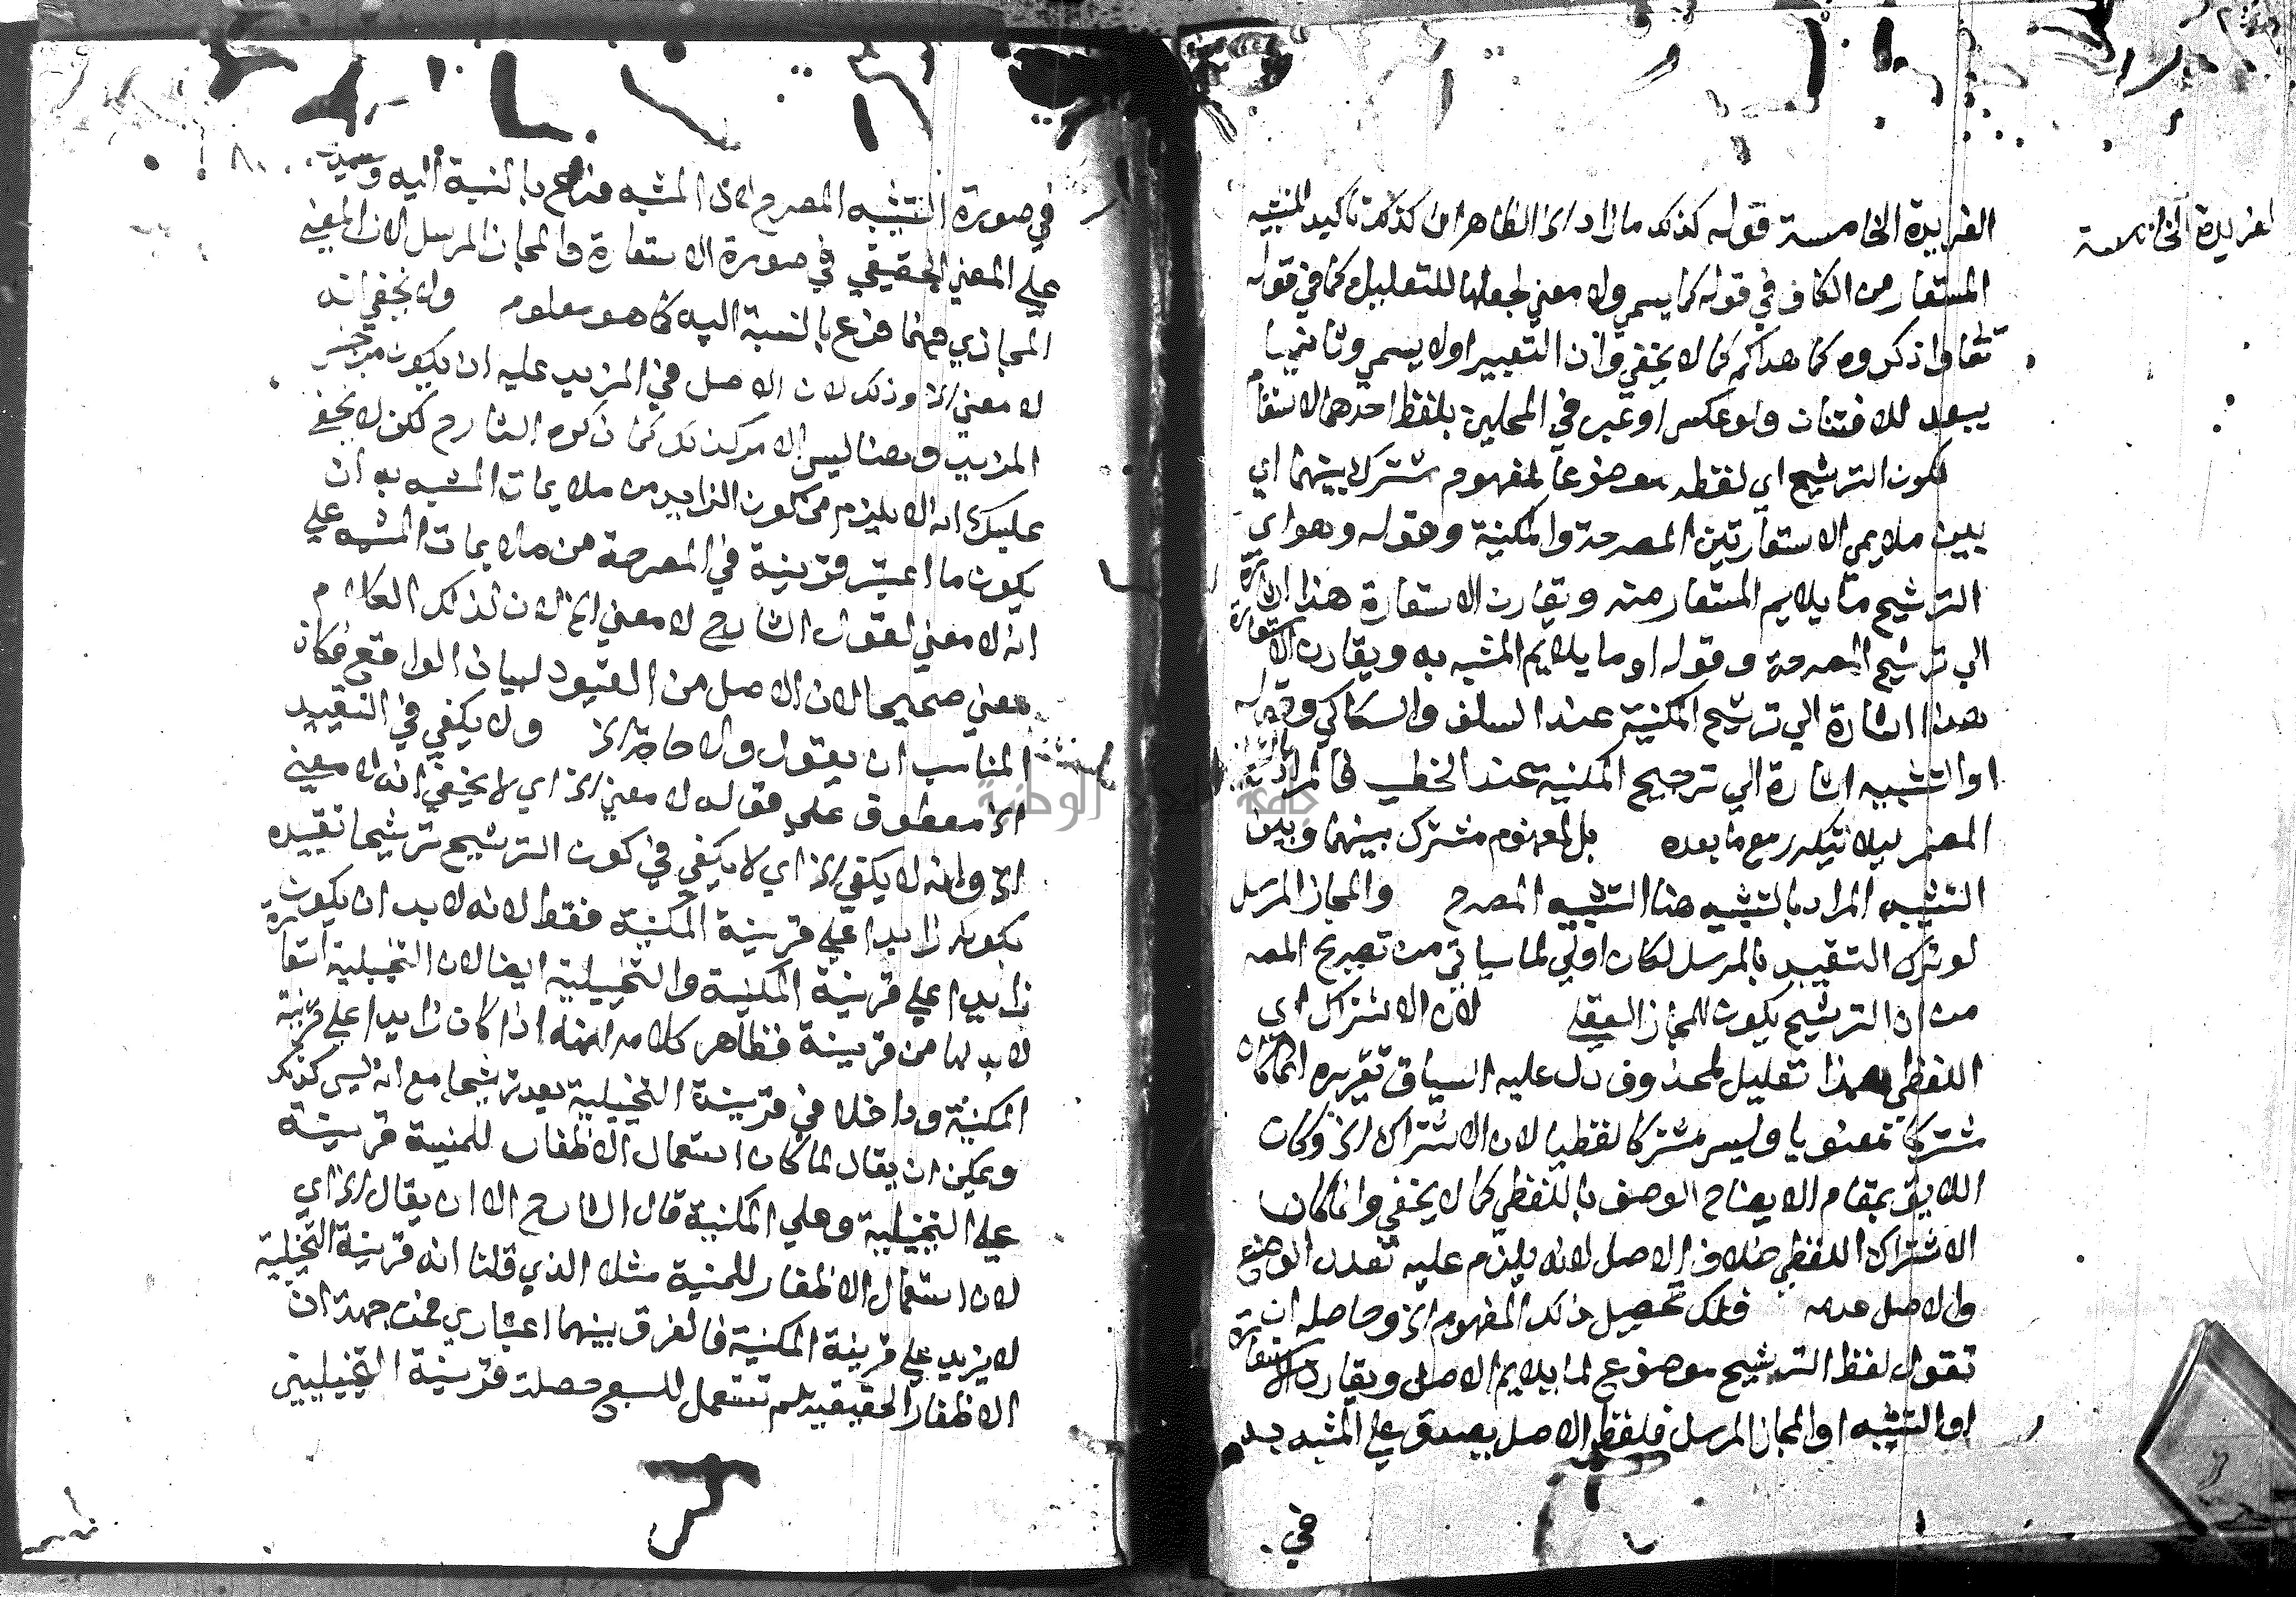 الفريدة الخامسة
الفريدة الخامسة قوله كذلك ما زاد الخ الظاهر ان كذلك تأكيد المشبه
المستفاد من الكاف في قوله كما يسمى ولا معنى لجعلها للتعليل كما في قوله
تعالى واذكروه كما هداكم كما لا يخفى وان التعبير اولا يسمى وثانيا
بيعد للافتنان ولو عكس او عبر في المحلين بلفظ احدهما لاستقام
لكون الترشيح اي لفظه موضوعا لمفهوم مشترك بينهما اي
بين ملايمي الاستعارتين المصرحة والمكنية وقوله وهو اي
الترشيح ما يلايم المستعار منه ويقارن الاستعارة هذا اشارة
الي ترشيح المصرحة وقوله او ما يلايم المشبه به ويقارن الاستعارة
هذا اشارة الي ترشيح المكنية عند السلف والسكاكي وقوله
او التشبيه اشارة الي ترجيح المكنية عند الخطيب فالمراد بالتشبيه
المضمر ليلا يتكرر مع ما بعده بل لمفهوم مشترك بينهما وبين
التشبيه المراد بالتشبيه هنا التشبيه المصرح والمجاز المرسل
لو ترك التقييد بالمرسل لكان اولي لما سياتي من تصريح المصـ
من ان الترشيح يكون للمجاز العقلي لان الاشتراك اي
اللفظي هذا تعليل لمحذوف دل عليه السياق تقريره انما كان
مشتركا معنويا وليس مشتركا لفظيا لان الاشتراك الخ وكان
اللايق بمقام الايضاح الوصف باللفظي كما لا يخفي وانما كان
الاشتراك اللفظي خلاف الاصل لانه يلزم عليه تعدد الوضع
والاصل عدمه فلك تحصيل ذلك المفهوم الخ وحاصله ان
تقول لفظ الترشيح موضوع لما يلايم الاصل ويقارن الاستعارة
او التشبيه او المجاز المرسل فلفظ الاصل يصدق علي المشبه به
في
في صورة التشبيه المصرح لان المشبه فرع بالنسبة اليه
علي المعني الحقيقي في صورة الاستعارة والمجاز المرسل لان المعني
المجازي فيهما فرع بالنسبة اليه كما هو معلوم ولا يخفي انه
لا معني الخ وذلك لان الاصل في المزيد عليه ان يكون من جنس
المزيد وهنا ليس الامر كذلك كما ذكره الشارح لكن لا يخفي
عليك انه لا يلزم من كون الزايد من ملايمات المشبه به ان
يكون ما اعتبر قرينة في المصرحة من ملايمات المشبه علي
انه لا معني لقول الشارح لا معني الخ لان لذلك الكلام
معني صحيحا لان الاصل من القيود لبيان الواقع فكان
المناسب ان يقول ولا حاجة الخ ولا يكفي في التقييد
الخ معطوف علي قوله لا معني الخ اي لا يخفي انه لا معني
الخ وانه لا يكفي الخ اي لا يكفي في كون الترشيح ترشيحا تقييده
بكونه زايدا علي قرينة المكنية فقط لانه لا بد ان يكون
زايدا علي قرينة المكنية والتخييلية ايضا لان التخييلية استعارة
لا بد لها من قرينة فظاهر كلامه انه اذا كان زايدا علي قرينة
المكنية وداخلا في قرينة التخييلية يعد ترشيحا مع انه ليس كذلك
ويمكن ان يقال لما كان استعمال الاظفار للمنية قرينة
علي التخييلية وعلي المكنية قال الشارح الا ان يقال الخ اي
لان استعمال الاظفار للمنية مثلا الذي قلنا انه قرينة التخييلية
لا يزيد علي قرينة المكنية فالفرق بينهما اعتباري فمن جهة ان
الاظفار الحقيقية لم تستعمل للسبع حصلت قرينة التخييلية